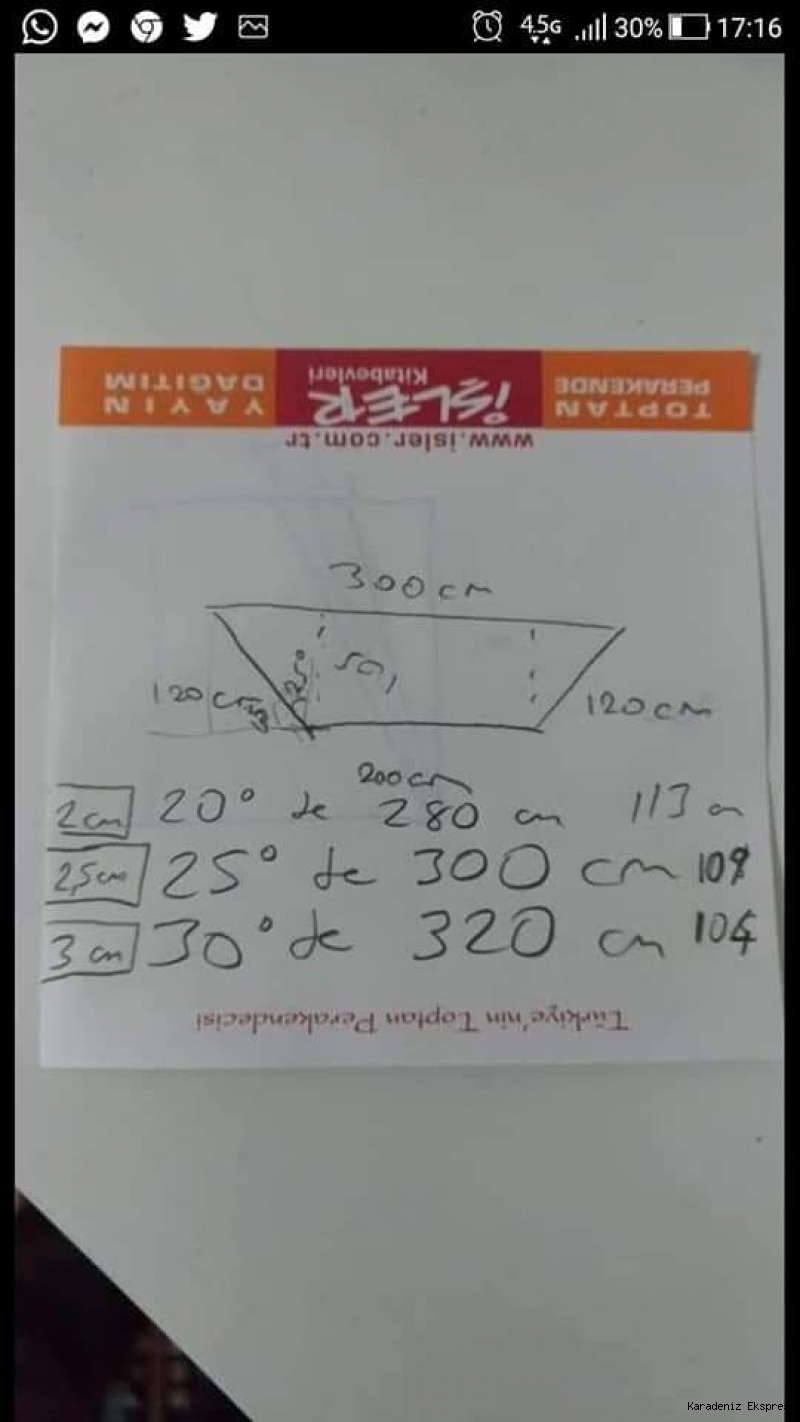 4.5G 30% 17:16
TOPTAN PERAKENDE
İŞLER Kitabevleri
YAYIN DAĞITIM
www.isler.com.tr
300 cm
120 cm
120 cm
200 cm
2 cm 20° de 280 cm 113 cm
2,5 cm 25° de 300 cm 108
3 cm 30° de 320 cm 104
Türkiye'nin Toptan Perakendecisi
Karadeniz Ekspres